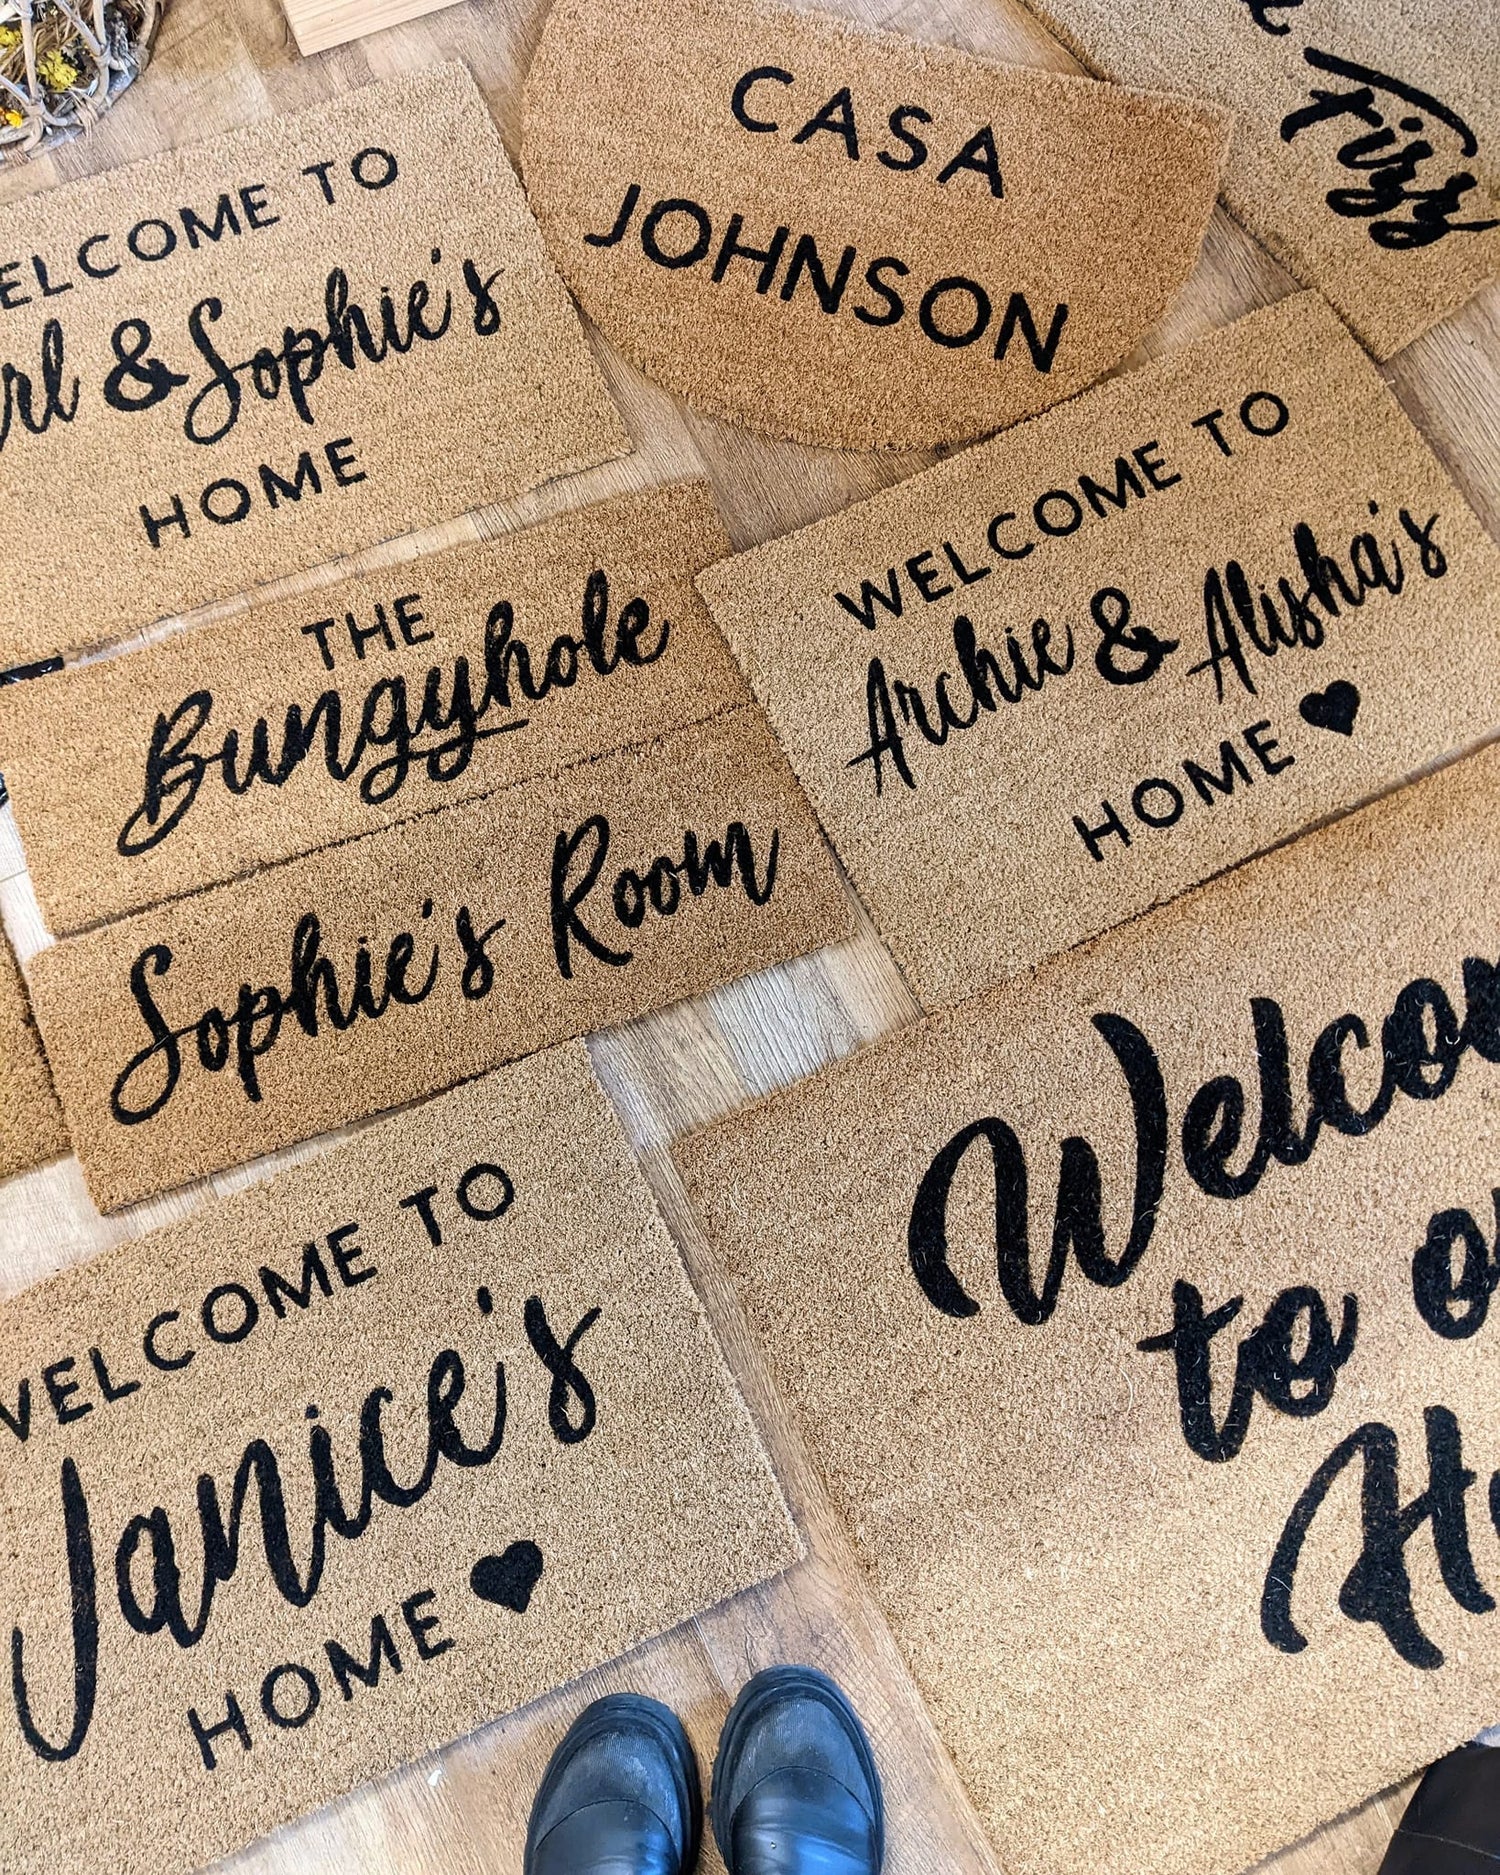 WELCOME TO
& Sophie's
HOME
CASA
JOHNSON
THE
Bungyhole
Sophie's Room
WELCOME TO
Archie & Alisha's
HOME
WELCOME TO
Janice's
HOME
Welcome
to